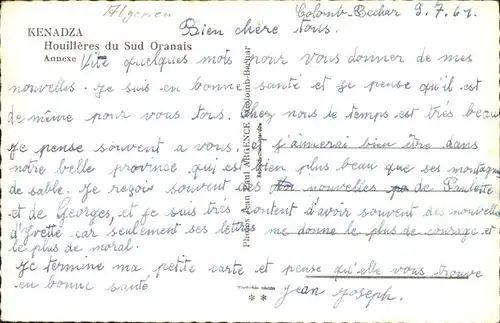 Algerien
Colomb-Bechar 9.7.61.
KENADZA
Houillères du Sud Oranais
Annexe
Bien chère tous.
Vite quelques mots pour vous donner de mes
nouvelles. Je suis en bonne santé et je pense qu'il est
de même pour vous tous. Chez nous le temps est très beau
je pense souvent a vous, et j'aimerai bien être dans
notre belle province qui est bien plus beau que ses montagnes
de sable. Je reçois souvent des nouvelles de Paulette
et de Georges, et je suis très content d'avoir souvent des nouvelles
d'Yvette car seulement ses lettres me donne le plus de courage et
le plus de moral.
Je termine ma petite carte et pense qu'elle vous trouve
en bonne santé
Jean Joseph.
Photos Jean Paul ARGENCE Colomb-Bechar